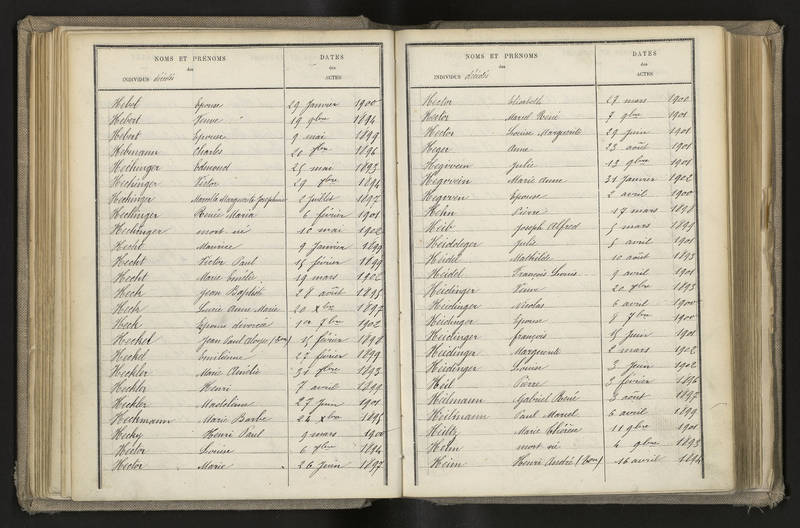 NOMS ET PRÉNOMS
des
INDIVIDUS décédés
DATES
des
ACTES
Hebel Epouse 29 Janvier 1900
Hebert Veuve 19 9bre 1894
Hebert Epouse 9 mai 1899
Hebmann Charles 20 1896
Hechinger Edmond 25 mai 1893
Hechinger Victor 29 1894
Hechinger Marguerite Joséphine 2 Juillet 1897
Hechinger Renée Maria 6 février 1901
Hechinger mort né 10 mai 1902
Hecht Maurice 9 Janvier 1899
Hecht Victor Paul 15 février 1899
Hecht Marie 19 mars 1902
Heck Jean Baptiste 28 août 1895
Heck Lucie Anne Marie 20 xbre 1897
Heck Epouse divorcée 1er 1902
Heckel Jean Paul Aloyse 15 février 1898
Heckel Emilienne 27 février 1899
Heckler Marie Amélie 31 1893
Heckler Henri 7 avril 1899
Heckler Madeleine 27 Juin 1901
Heckmann Marie Barbe 24 xbre 1895
Hecky Henri Paul 9 mars 1900
Hector Louise 6 1894
Hector Marie 26 Juin 1897
NOMS ET PRÉNOMS
des
INDIVIDUS décédés
DATES
des
ACTES
Hector Elisabeth 27 mars 1900
Hector Marcel René 7 9bre 1901
Hector Louise Marguerite 29 Juin 1901
Heger Anne 23 août 1901
Julie 13 9bre 1901
Marie Anne 31 Janvier 1902
Epouse 2 avril 1900
Hehn Pierre 17 mars 1898
Heib Joseph Alfred 5 mars 1899
Julie 5 avril 1901
Heidel Mathilde 10 août 1893
Heidel François Louis 9 avril 1901
Heidinger Veuve 20 1893
Heidinger Nicolas 6 avril 1900
Heidinger Epouse 8 1900
Heidinger françois 15 Juin 1901
Heidinger Marguerite 2 mars 1902
Heidinger Louise 3 Juin 1902
Heil Pierre 3 février 1896
Heilmann Gabriel René 3 août 1897
Heilmann Paul Marcel 6 avril 1899
Heiltz Marie 11 9bre 1901
Heim mort né 4 9bre 1893
Heim Henri André 16 avril 1894